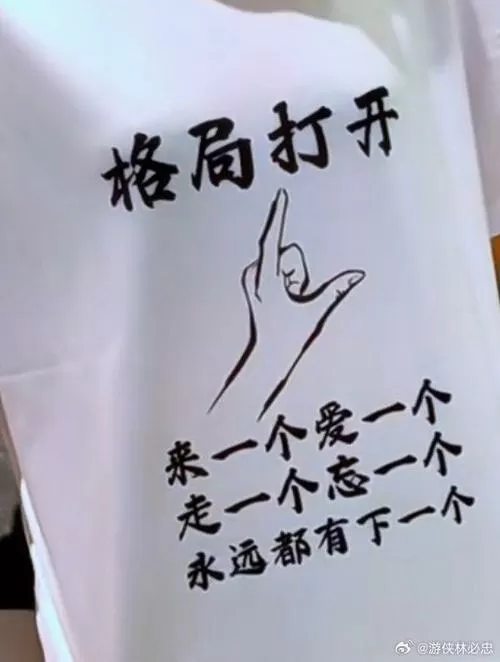 格局打开
来一个爱一个
走一个忘一个
永远都有下一个
@游侠林必忠